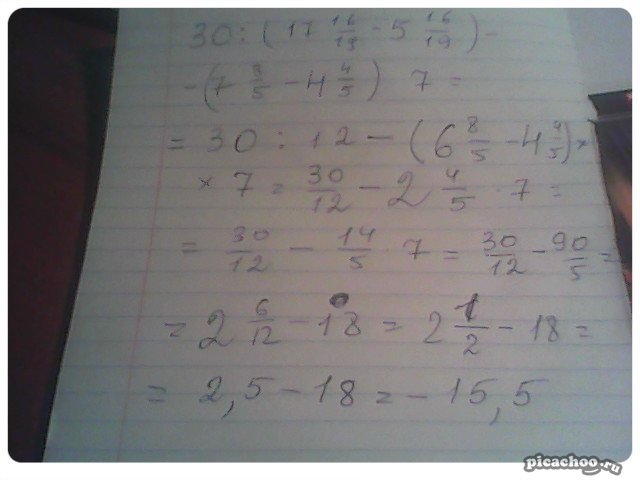 30 : (17 16/19 - 5 16/19) -
- (7 3/5 - 4 4/5) 7 =
= 30 : 12 - (6 8/5 - 4 4/5) ×
× 7 = 30/12 - 2 4/5 · 7 =
= 30/12 - 14/5 · 7 = 30/12 - 90/5 =
= 2 6/12 - 18 = 2 1/2 - 18 =
= 2,5 - 18 = - 15,5
picachoo.ru